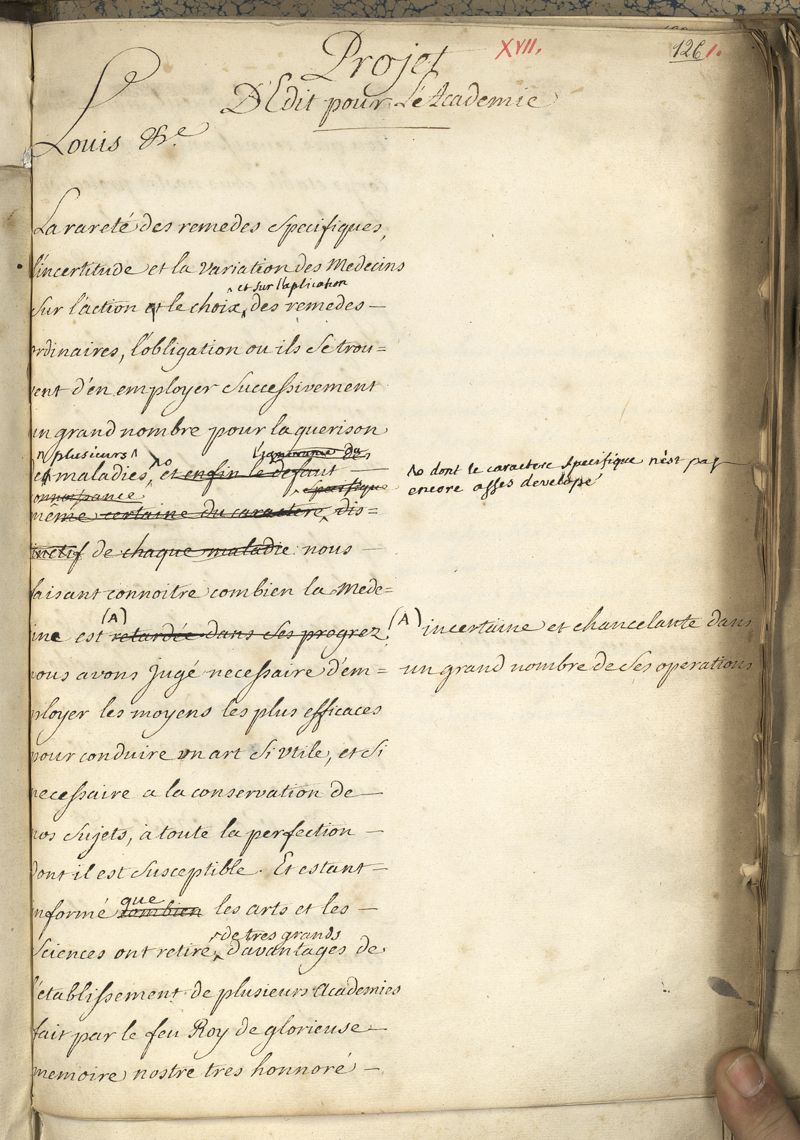 Projet
XVII.
126 1.
D'Edit pour L'Academie
Louis &c.
La rareté des remedes specifiques,
l'incertitude et la variation des Medecins
et sur l'aplication
sur l'action et le choix, des remedes
ordinaires, l'obligation ou ils se trou=
vent d'en employer successivement
un grand nombre pour la guerison
plusieurs
maladies, et enfin le defaut
connoissance specifique
même certaine du caractere, dis=
tinctif de chaque maladie nous
No dont le caractere specifique n'est pas
encore asses developé
faisant connoitre combien la Mede=
(A)
ine est retardée dans ses progrez
(A) incertaine et chancelante dans
un grand nombre de ses operations
nous avons jugé necessaire d'em=
ployer les moyens les plus efficaces
pour conduire un art si utile, et si
necessaire a la conservation de
nos sujets, à toute la perfection
dont il est susceptible. Et estant
que
informé combien les arts et les
de tres grands
sciences ont retiré, d'avantages de
l'etablissement de plusieurs Academies
fait par le feu Roy de glorieuse
memoire nostre tres honnoré